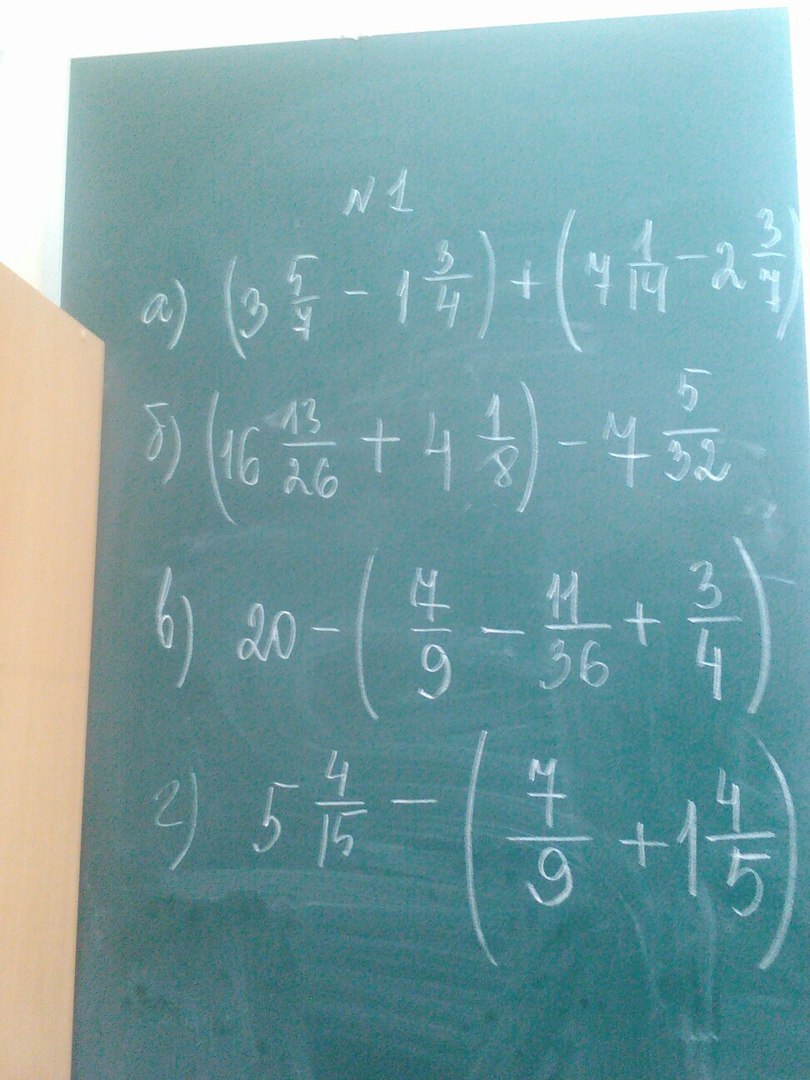 N1
а) (3 5/7 - 1 3/4) + (7 1/14 - 2 3/7)
б) (16 13/26 + 4 1/8) - 7 5/32
в) 20 - (7/9 - 11/36 + 3/4)
г) 5 4/15 - (7/9 + 1 4/5)